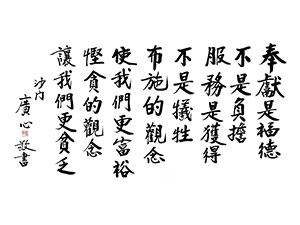 奉獻是福德
不是負擔
服務是獲得
不是犧牲
布施的觀念
使我們更富裕
慳貪的觀念
讓我們更貧乏
沙門
廣心
敬書